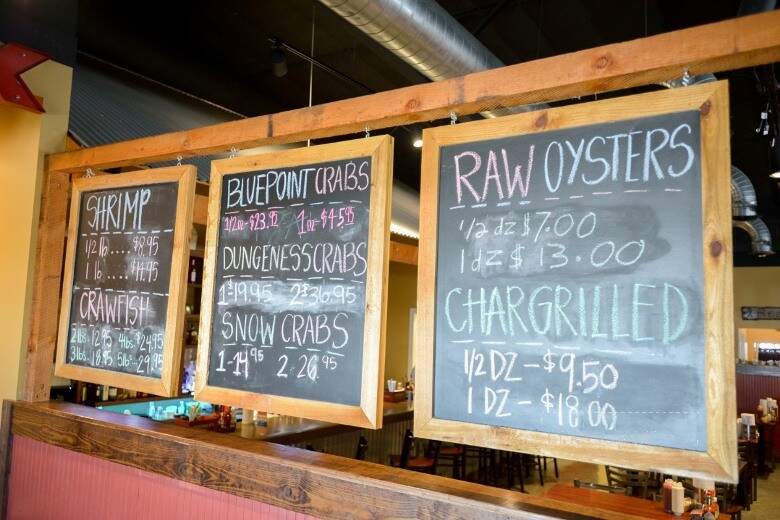 SHRIMP
1/2 lb ..... $8.95
1 lb ..... $14.95
CRAWFISH
2lbs. 12.95 4lbs. $24.95
3lbs. 18.95 5lbs - 29.95
BLUEPOINT CRABS
1/2 DZ - $23.95 1 DZ - $45.95
DUNGENESS CRABS
1 $19.95 2 $36.95
SNOW CRABS
1-14.95 2-26.95
RAW OYSTERS
1/2 dz $7.00
1 dz $13.00
CHARGRILLED
1/2 DZ - $9.50
1 DZ - $18.00